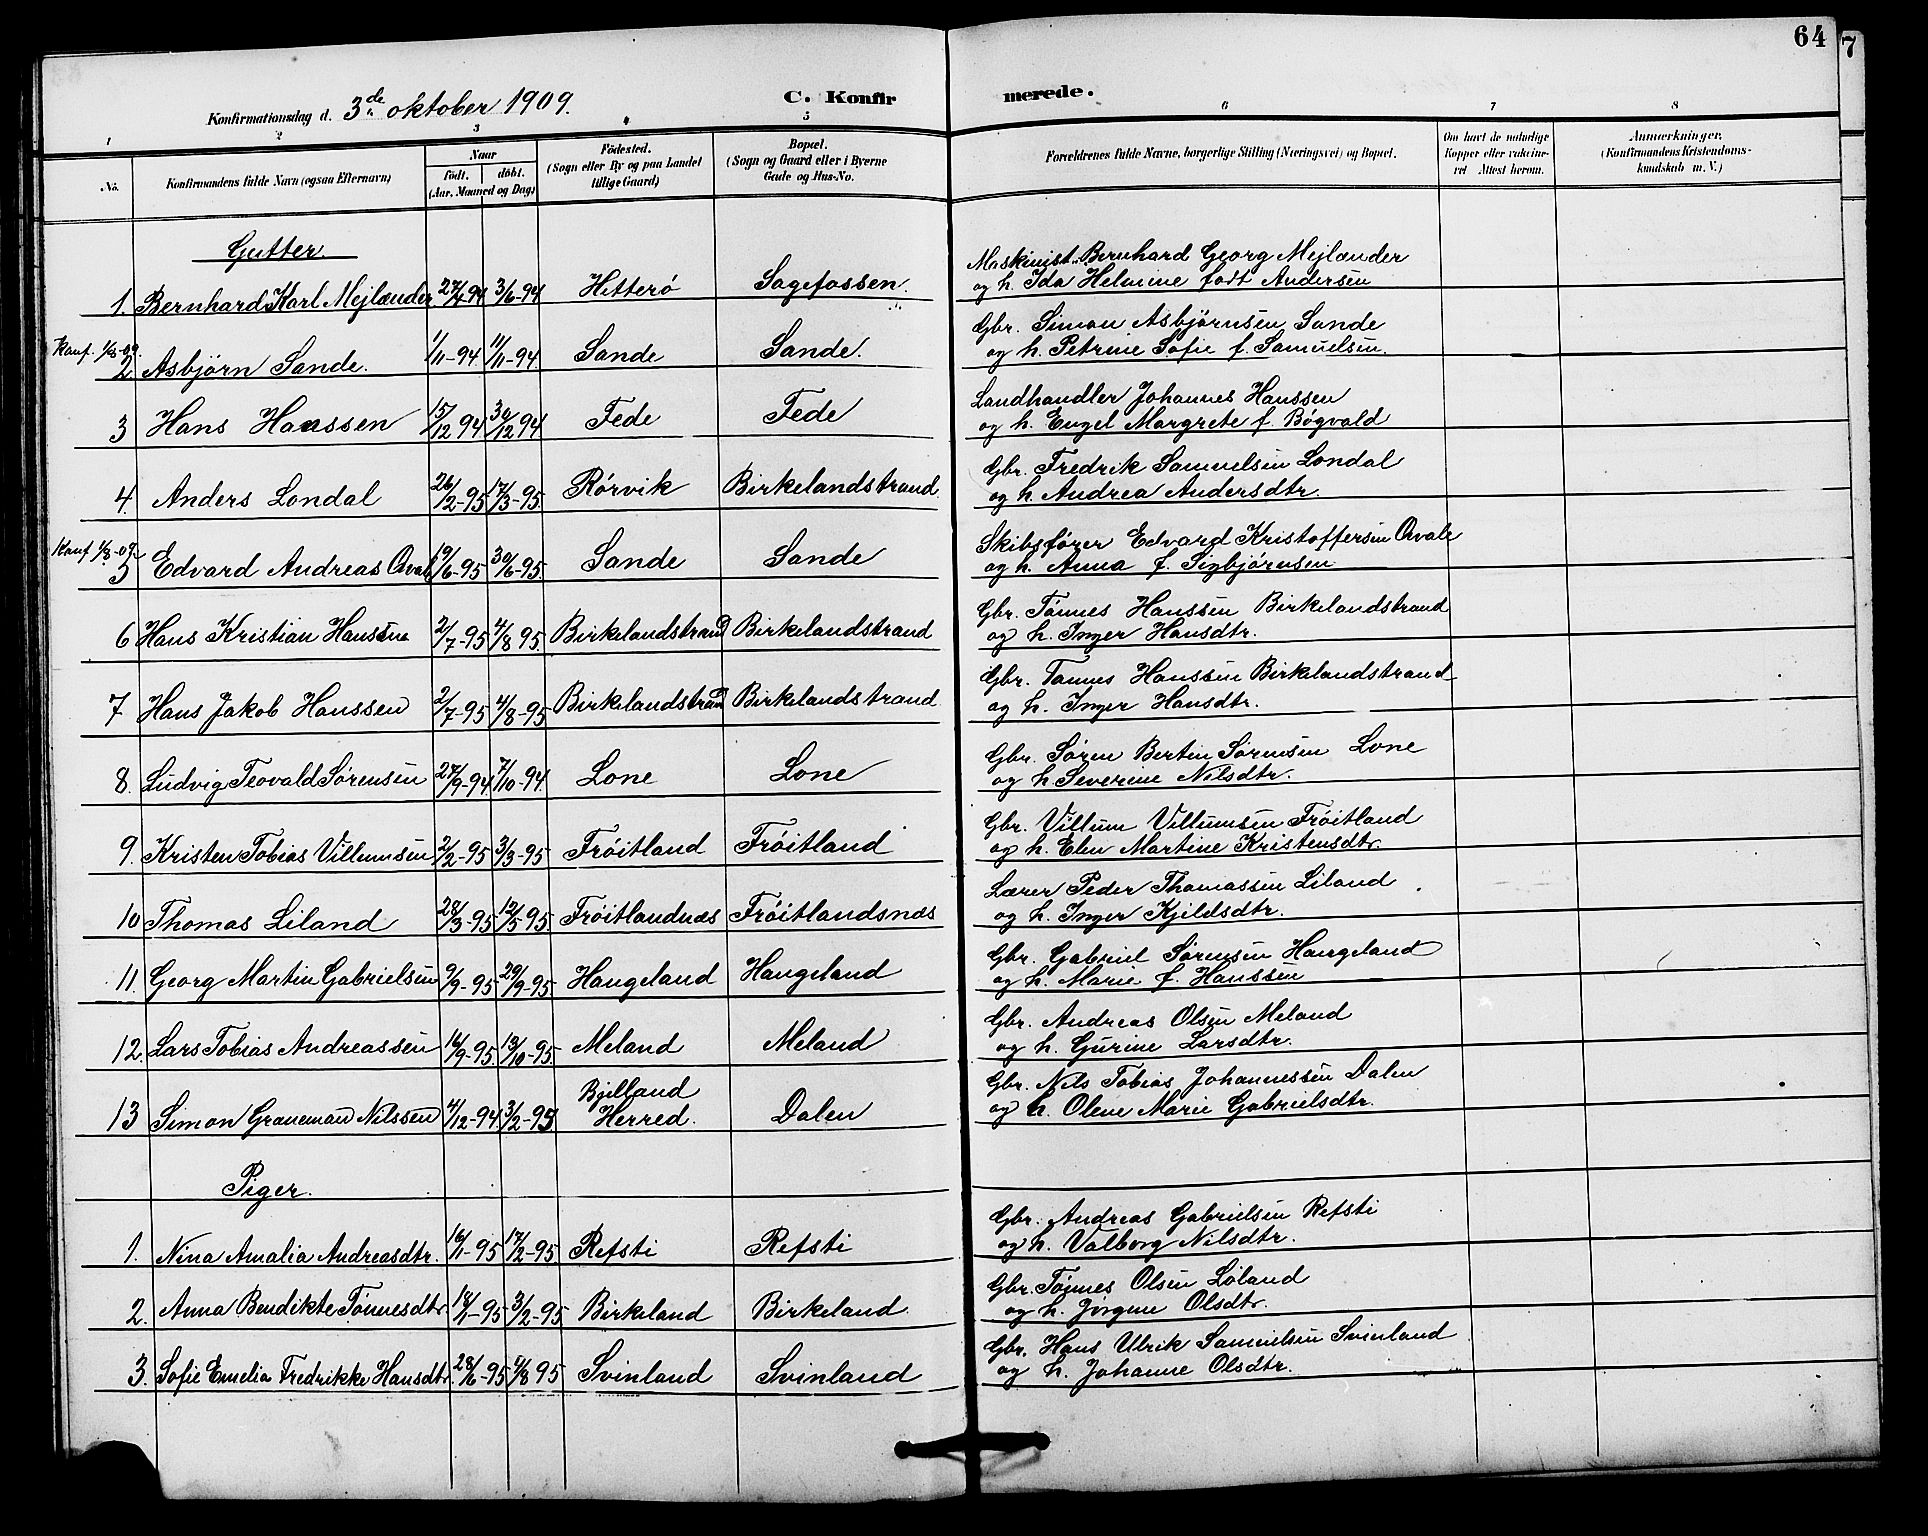 64
7
Konfirmationsdag d. 3de oktober 1909.
C. Konfirmerede.
1 2 3 4 5 6 7 8
No.
Konfirmandens fulde Navn (ogsaa Efternavn)
Naar
født. døbt.
(Aar, Maaned og Dag)
Fødested.
(Sogn eller By og paa Landet
tillige Gaard)
Bopæl.
(Sogn og Gaard eller i Byerne
Gade og Hus-No.
Forældrenes fulde Navne, borgerlige Stilling (Næringsvei) og Bopæl.
Om havt de naturlige
Kopper eller vaccine-
ret Attest herom.
Anmærkninger.
(Konfirmandens Kristendoms-
kundskab m. V.)
Gutter.
1. Bernhard Karl Mejlænder 27/4 94 3/6-94 Hitterø Sagefossen.
Maskinist Bernhard Georg Mejlænder
og h. Ida Helmine født Andersen
Konf. 1/8-09.
2 Asbjørn Sande. 1/11-94 11/11-94. Sande Sande.
Gbr. Simon Asbjørnsen Sande
og h. Petrine Sofie f. Samuelsen.
3 Hans Hanssen 15/12 94 30/12 94 Fede Fede
Landhandler Johannes Hanssen
og h. Engel Margrete f. Bøgvald
4. Anders Londal 26/2-95 17/3-95. Rørvik Birkelandstrand.
Gbr. Fredrik Samuelsen Londal
og h. Andrea Andersdtr.
Konf 1/8-09.
5 Edvard Andreas Qvale 19/6-95 30/6-95. Sande Sande
Skibsfører Edvard Kristoffersen Qvale
og h. Anna f. Sigbjørnsen
6 Hans Kristian Hanssen 2/7-95 4/8 95. Birkelandstrand Birkelandstrand
Gbr. Tønnes Hanssen Birkelandstrand
og h. Inger Hansdtr.
7 Hans Jakob Hanssen 2/7-95 4/8-95 Birkelandstrand Birkelandstrand
Gbr. Tønnes Hanssen Birkelandstrand
og h. Inger Hansdtr.
8. Ludvig Teovald Sørensen 27/9-94 7/10-94. Lone Lone
Gbr. Søren Bertin Sørensen Lone
og h. Severine Nilsdtr.
9. Kristen Tobias Villumsen 2/2-95 3/3-95 Frøitland Frøitland
Gbr. Villum Villumsen Frøitland
og h. Elen Martine Kristensdtr.
10 Thomas Liland 28/3-95 12/5-95. Frøitlandnæs Frøitlandsnæs
Lærer Peder Thomassen Liland
og h. Inger Kjeldsdtr.
11. Georg Martin Gabrielsen 9/9-95 29/9-95 Haugeland Haugeland
Gbr. Gabriel Sørensen Haugeland
og h. Marie f. Hanssen
12. Lars Tobias Andreassen 16/9-95. 13/10-95 Meland Meland
Gbr. Andreas Olsen Meland
og h. Gurine Larsdtr.
13 Simon Graneman Nilssen 4/12-94 3/2-95 Bjelland Herred. Dalen
Gbr. Nils Tobias Johannessen Dalen
og h. Olene Marie Gabrielsdtr.
Piger.
1. Nina Amalia Andreasdtr. 16/1-95 17/2-95. Refsti Refsti
Gbr. Andreas Gabrielsen Refsti
og h. Valborg Nilsdtr.
2. Anna Bendikte Tønnesdtr. 18/1-95 3/2-95 Birkeland Birkeland
Gbr. Tønnes Olsen Løland
og h. Jørgine Olsdtr.
3. Sofie Emelia Fredrikke Hansdtr. 28/6-95 4/8 95 Svinland Svinland
Gbr. Hans Ulrik Samuelsen Svinland
og h. Johanne Olsdtr.